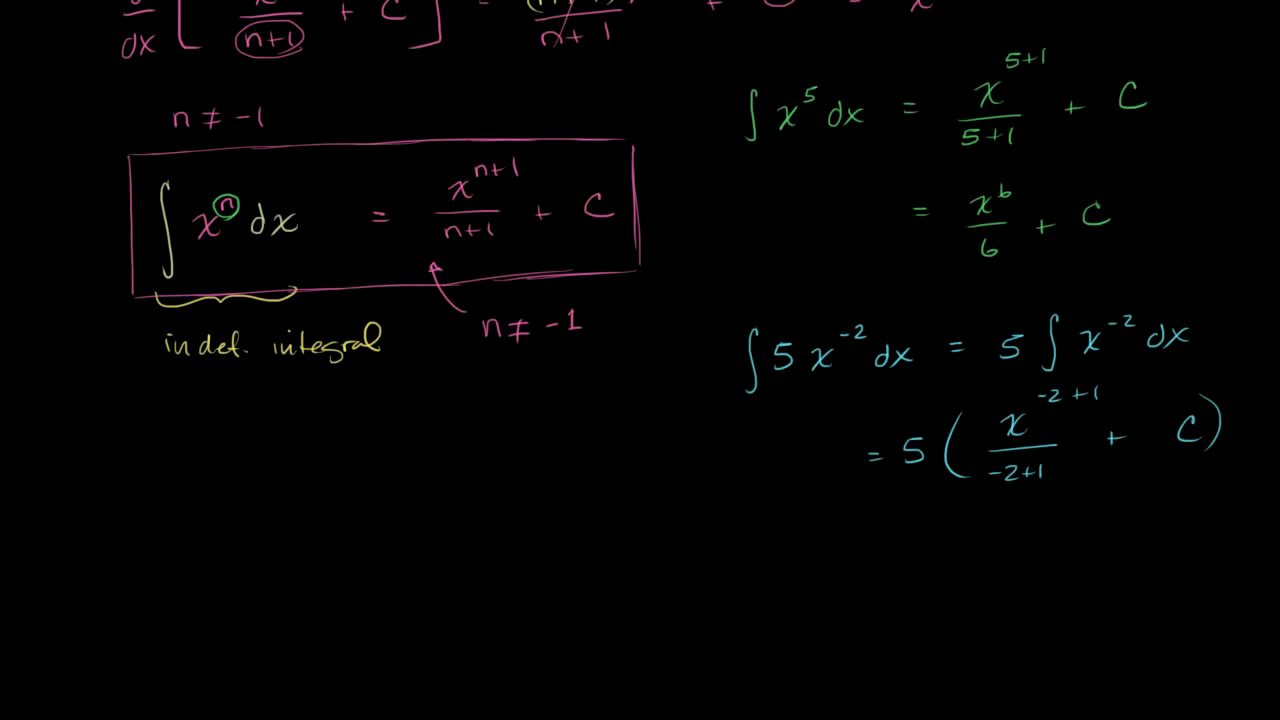 d/dx [ x/(n+1) + C ] = /(n+1) + x
n ≠ -1
∫ xⁿ dx = xⁿ⁺¹/(n+1) + C
n ≠ -1
indef. integral
∫ x⁵ dx = x⁵⁺¹/(5+1) + C
= x⁶/6 + C
∫ 5 x⁻² dx = 5 ∫ x⁻² dx
= 5 ( x⁻²⁺¹/(-2+1) + C )